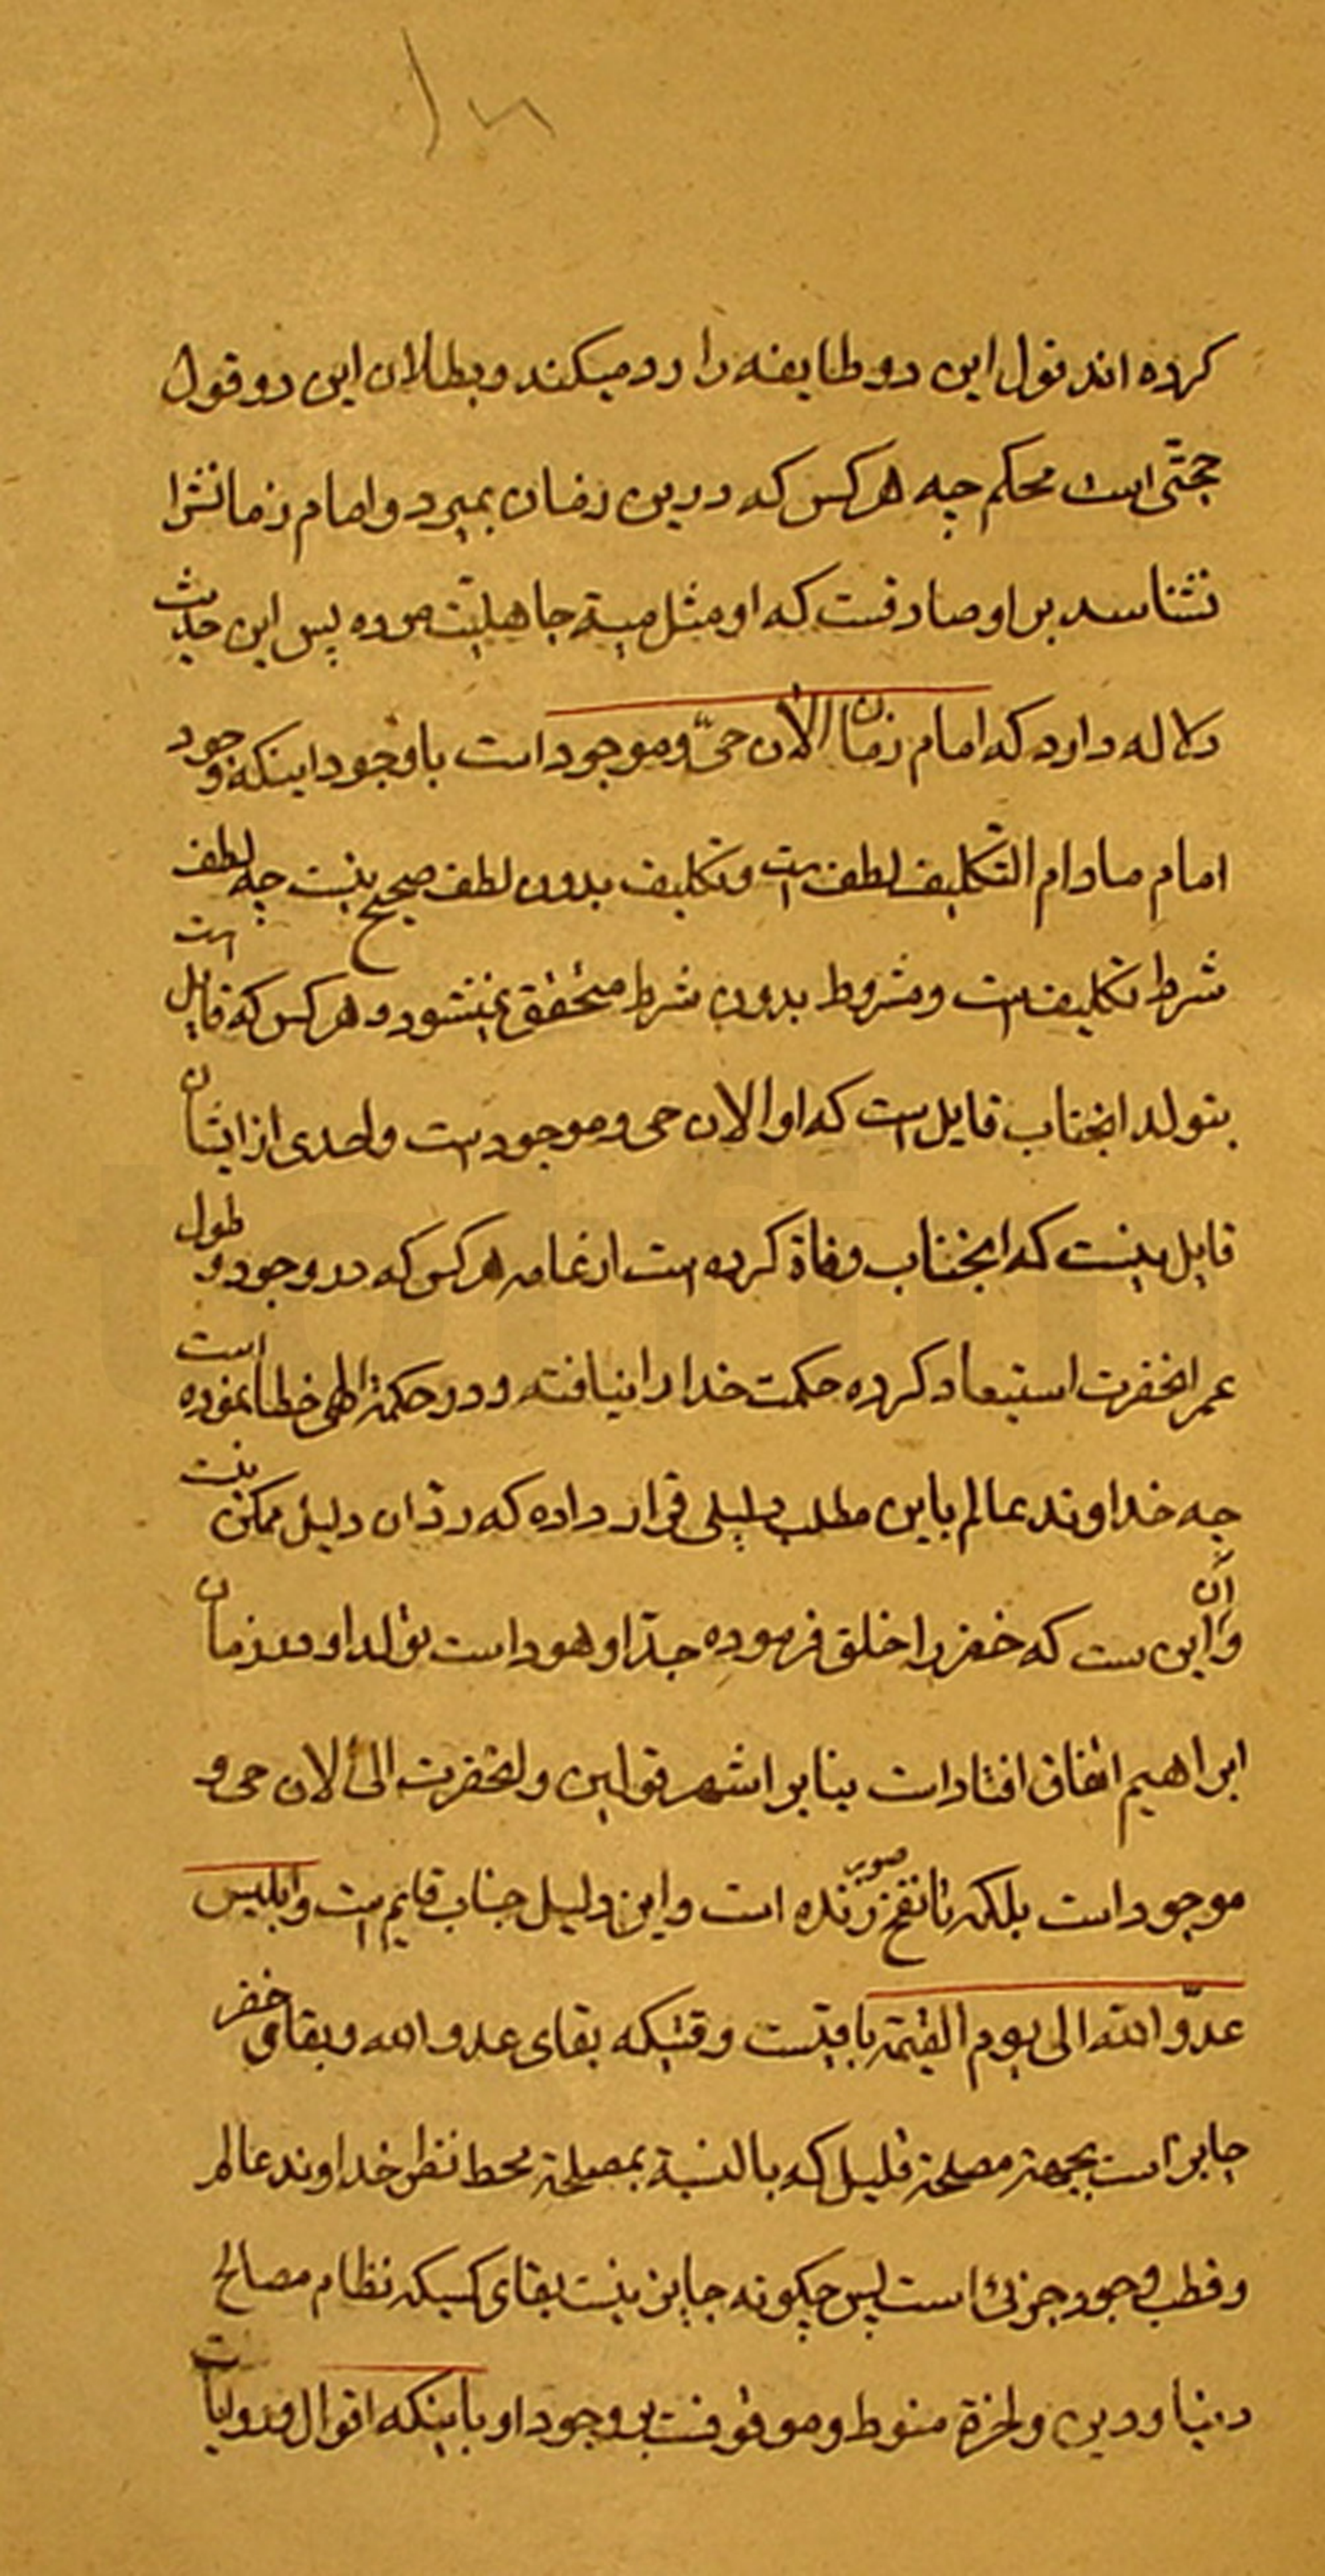 ۱۰۸
کرده اند قول این دو طایفه را رد میکند و بطلان این دو قول
حجتی است محکم چه هر کس که درین زمان بمیرد و امام زمانشرا
نشناسد بر او صادقست که او مثل میتة جاهلیّت مرده پس این حدیث
دلاله دارد که امام زمان الآن حیّ و موجود است باوجود اینکه وجود
امام مادام التّکلیف لطف است و تکلیف بدون لطف صحیح نیست چه لطف
شرط تکلیف است و مشروط بدون شرط متحقق نمیشود و هر کس که قایل است
بتولد انجناب قایل است که او الان حی و موجود است واحدی از ایشان
قایل نیست که انجناب وفاة کرده است از عامه هر کس که در وجود و طول
عمر انحضرت استبعاد کرده حکمت خدا را نیافته و در حکمة الهی خطا نموده است
چه خداوند عالم باین مطلب دلیلی قرار داده که رد آن دلیل ممکن نیست
و آن این ست که خضر را خلق فرموده جدّ او هود است تولد او در زمان
ابراهیم اتفاق افتاد است بنابر اشهر قولین و انحضرت الی الان حی و
موجود است بلکه تا نفخ صور زنده است و این دلیل جناب قایم است و ابلیس
عدوّ الله الی یوم القیمة باقیست وقتیکه بقای عدو الله و بقای خضر
جایز است بجهة مصلحة قلیل که بالنسبة بمصلحة محط نظر خداوند عالم
و قطب وجود جزئی است پس چکونه جایز نیست بقای کسیکه نظام مصالح
دنیا و دین و اخرة منوط و موقوفست بر وجود او با اینکه اقوال و روایات